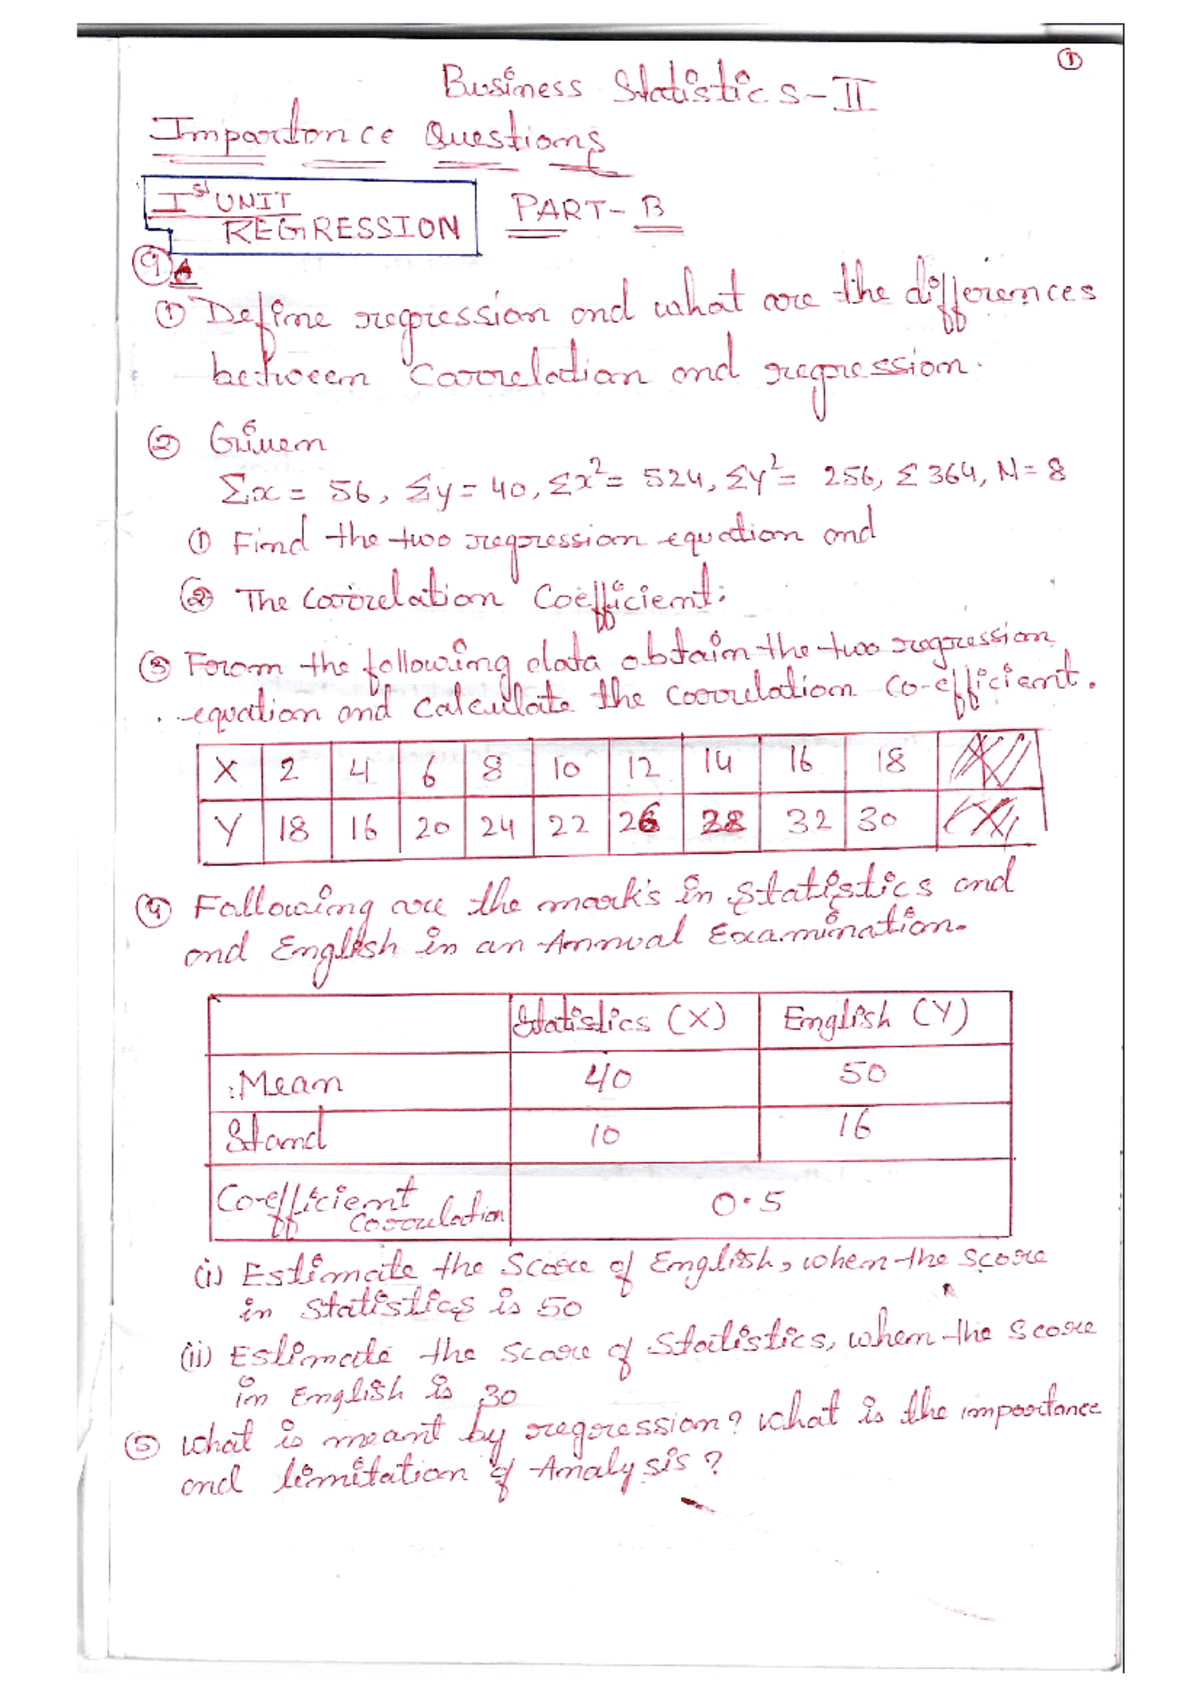 ①
Business Statistics-II
Importance Questions
Ist UNIT
REGRESSION
PART-B
9
① Define regression and what are the differences
between Correlation and regression.
② Given
Σx = 56, Σy = 40, Σx² = 524, Σy² = 256, Σ 364, N = 8
① Find the two regression equation and
② The Correlation Coefficient.
③ From the following data obtain the two regression
equation and calculate the correlation co-efficient.
X 2 4 6 8 10 12 14 16 18
Y 18 16 20 24 22 26 28 32 30
④ Following are the mark's in statistics and
and English in an Annual Examination.
Statistics (X) English (Y)
Mean 40 50
Stand 10 16
Co-efficient Correlation 0.5
(i) Estimate the Score of English, when the score
in statistics is 50
(ii) Estimate the score of statistics, when the score
in English is 30
⑤ what is meant by regression? what is the importance
and limitation of Analysis?